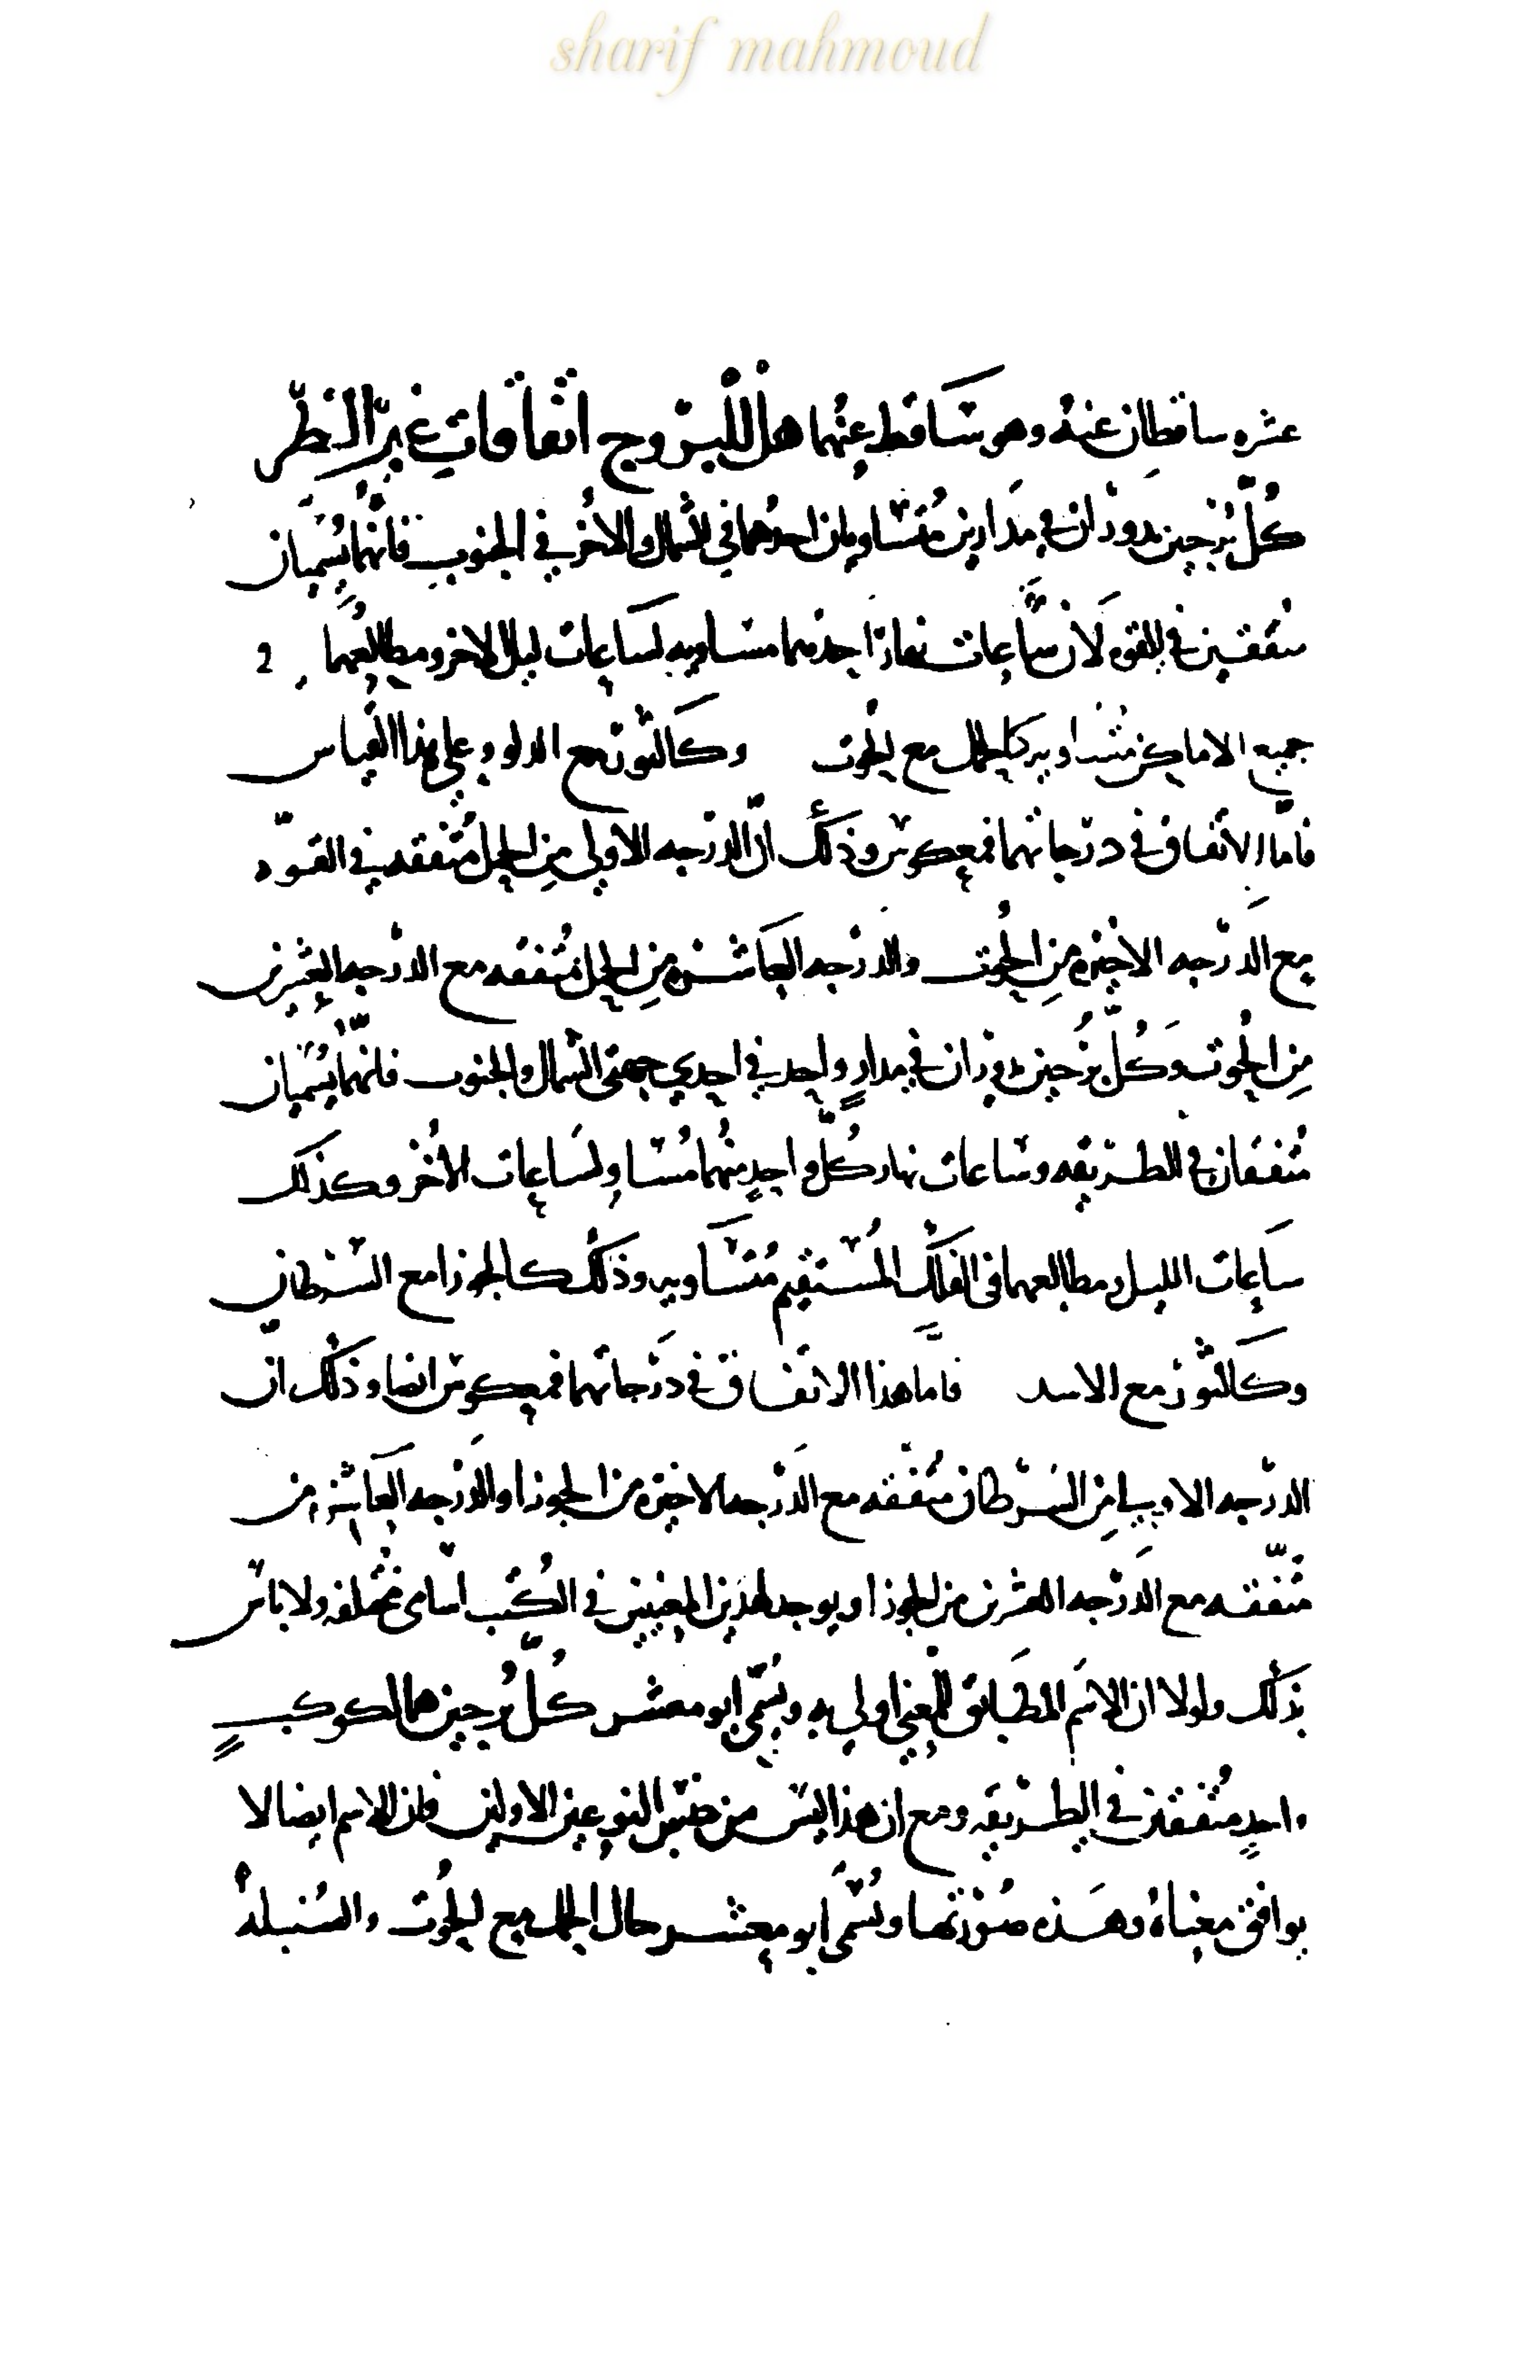 sharif mahmoud
عشره ساقطان عنه وهو ساقط عنهما هل للبروج اتفاقات غير النظر
كل برجين يدوران في مدارين متساويين احدهما في الشمال والاخر في الجنوب فانهما يسميان
متفقين في القوه لان ساعات نهار احدهما مساويه لساعات ليل الاخر ومطالعهما في
جميع الاماكن متساويه كالحمل مع الحوت وكالثور مع الدلو وعلى هذا القياس
فاما الاتفاق في درجاتهما فمعكوس وذلك ان الدرجه الاولى من الحمل متفقه في القوه
مع الدرجه الاخيره من الحوت والدرجه العاشره من الحمل متفقه مع الدرجه العشرين
من الحوت وكل برجين يدوران في مدار واحد في احدى جهتي الشمال والجنوب فانهما يسميان
متفقان في الطريقه وساعات نهار كل واحد منهما مساو لساعات الاخر وكذلك
ساعات الليل ومطالعهما في الفلك المستقيم متساويه وذلك كالجوزا مع السرطان
وكالثور مع الاسد فاما هذا الاتفاق في درجاتهما فمعكوس ايضا وذلك ان
الدرجه الاولي من السرطان متفقه مع الدرجه الاخيره من الجوزا والدرجه العاشره من
متفقه مع الدرجه العشرين من الجوزا ويوجد لهذين المعنيين في الكتب اسامى مختلفه ولا باس
بذلك ولولا ان الاسم المطابق للمعنى اولى به ويسمى ابو معشر كل برجين هما لكوكب
واحد متفقين في الطريقه ومع ان هذا ليس من جنس النوعين الاولين فان الاسم ايضا لا
يوافق معناه وهذه صورتها ويسمى ابو معشر حال الحمل مع الحوت والسنبله